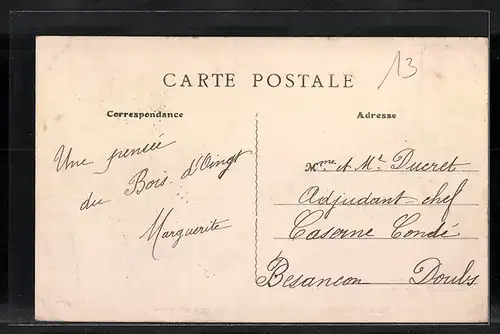 13
CARTE POSTALE
Correspondance
Adresse
Une pensée
du Bois d'Oingt
Marguerite
Mme et Mr Ducret
Adjudant-chef
Caserne Condé
Besancon Doubs